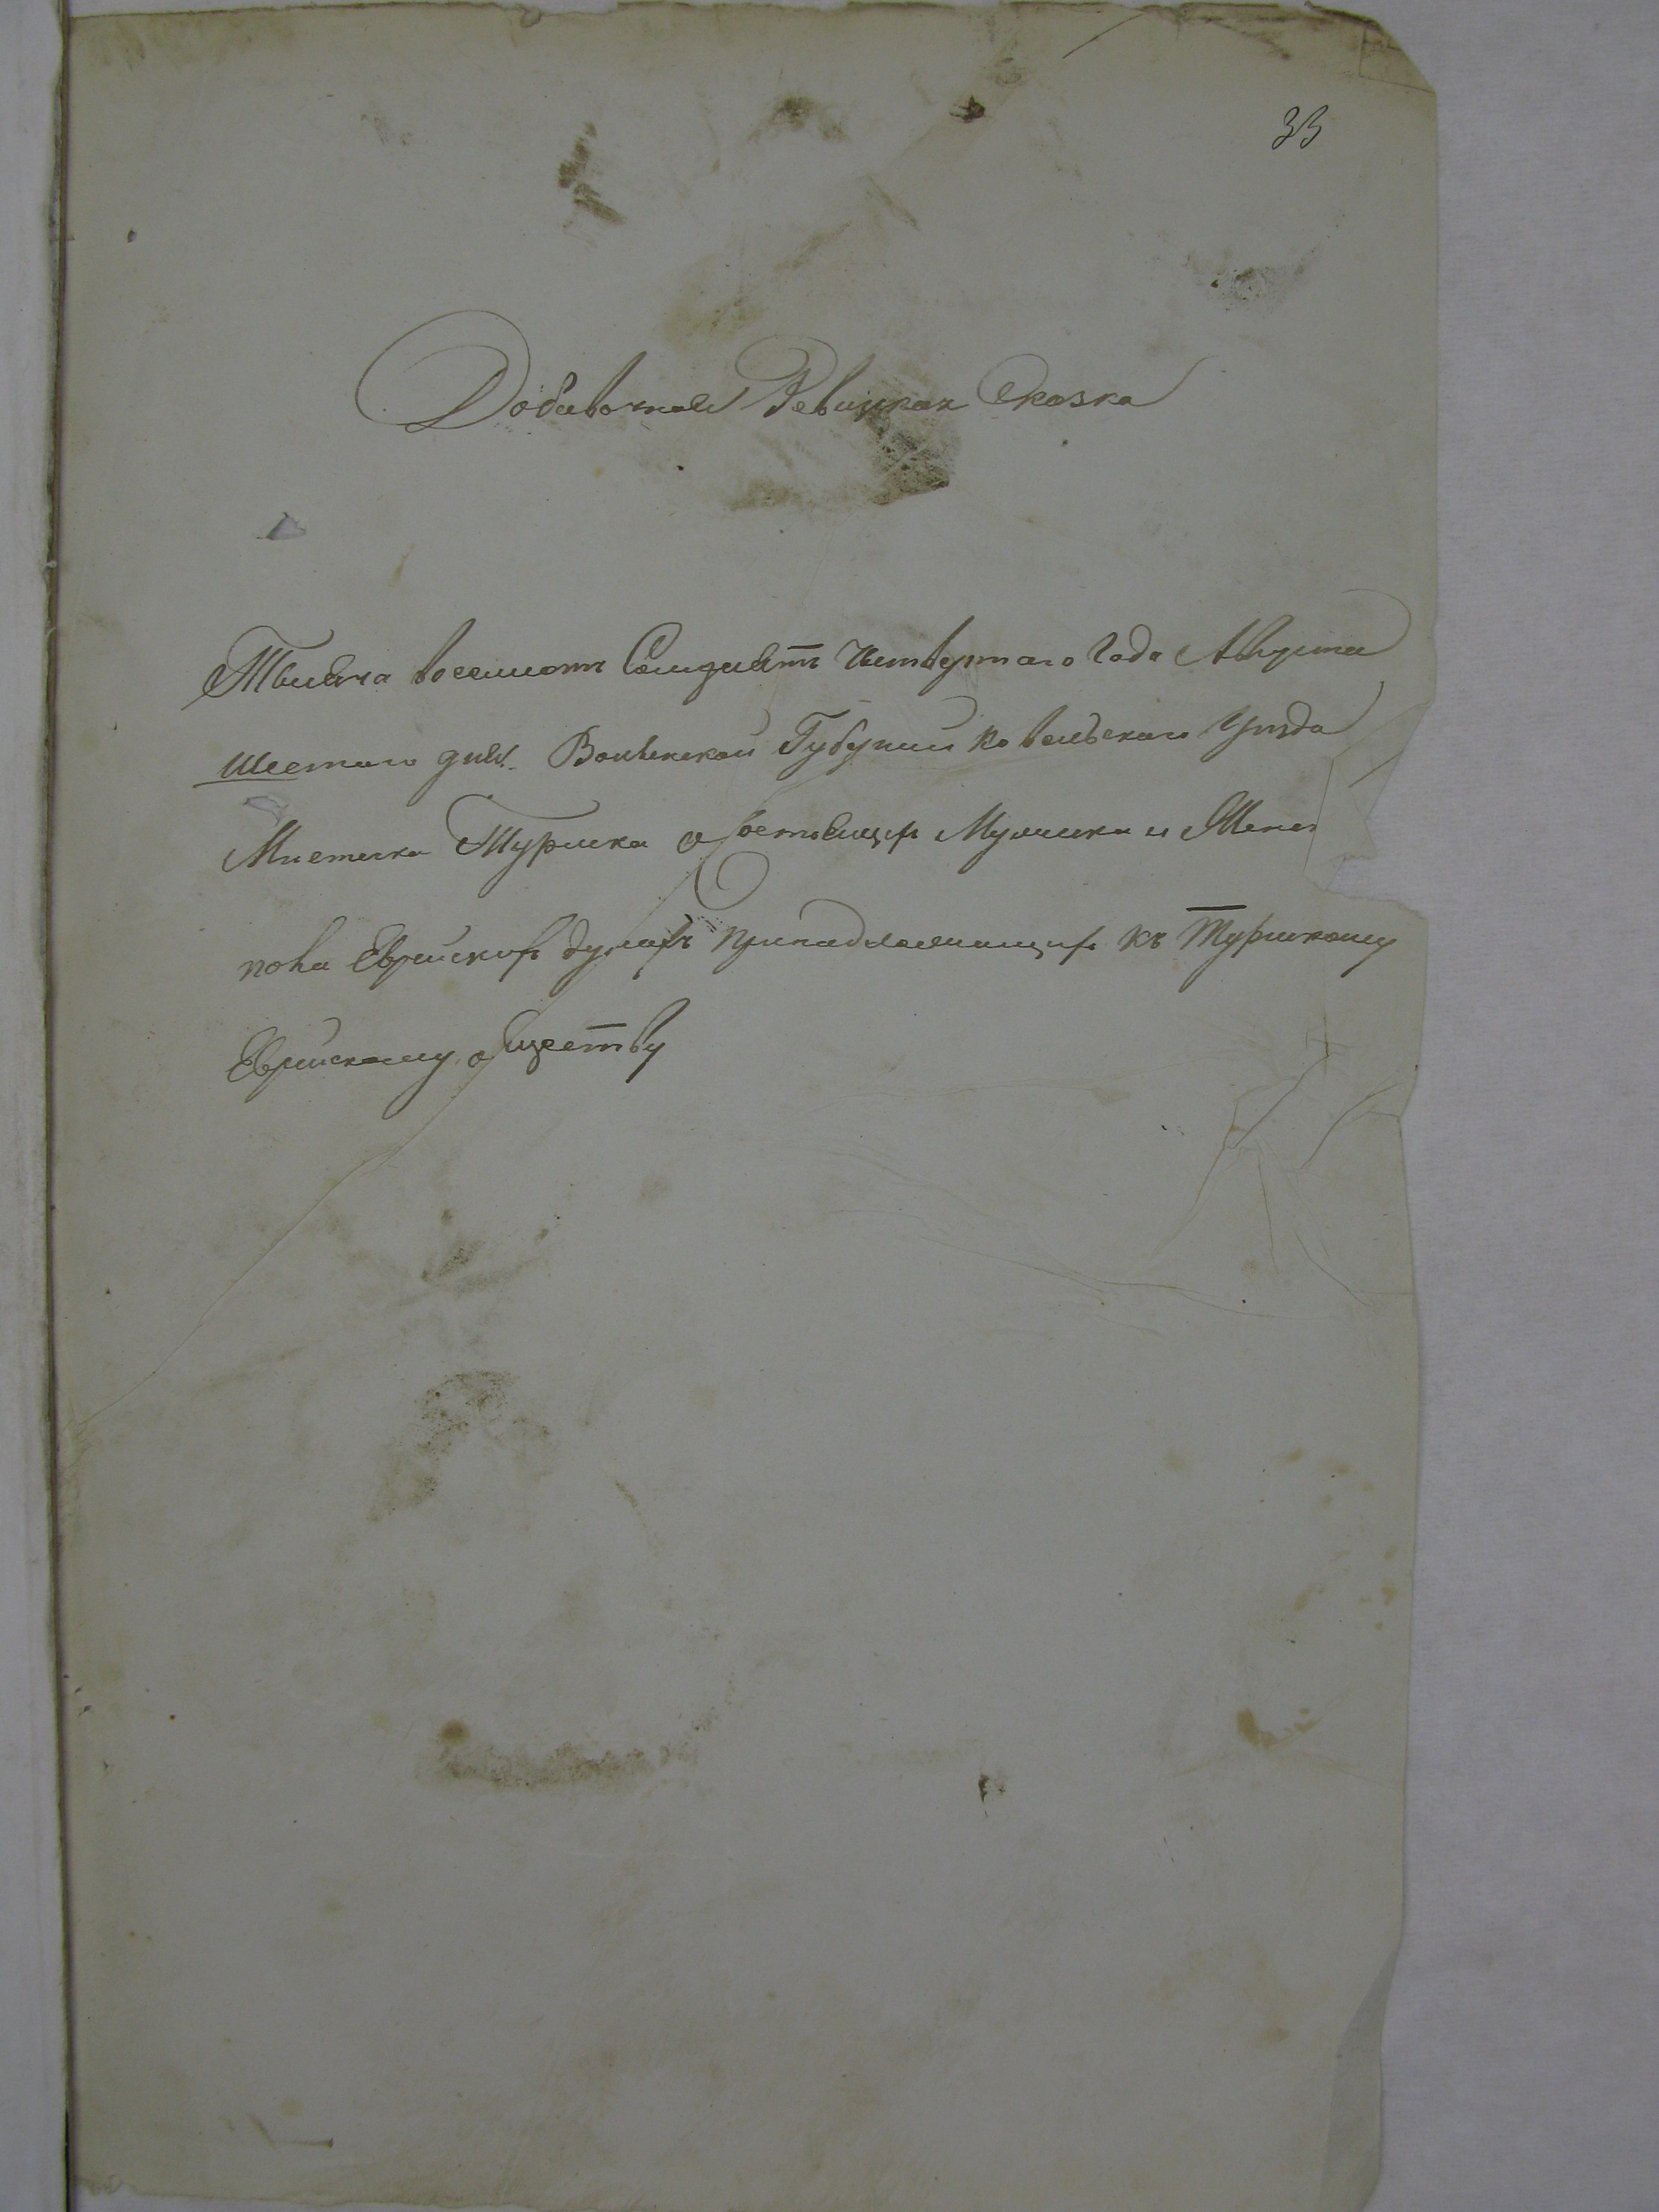 33
Добавочная Ревизкая Сказка
Тысяча восемьсот Семдесятъ Четвертаго Года Августа
шестаго дня. Волынской Губерніи Ковельскаго Уезда
Мистечка Туриска о состоящих Мужиска и Женс
пола Еврейских душах принадлежащих къ Турискому
Еврейскому обществу